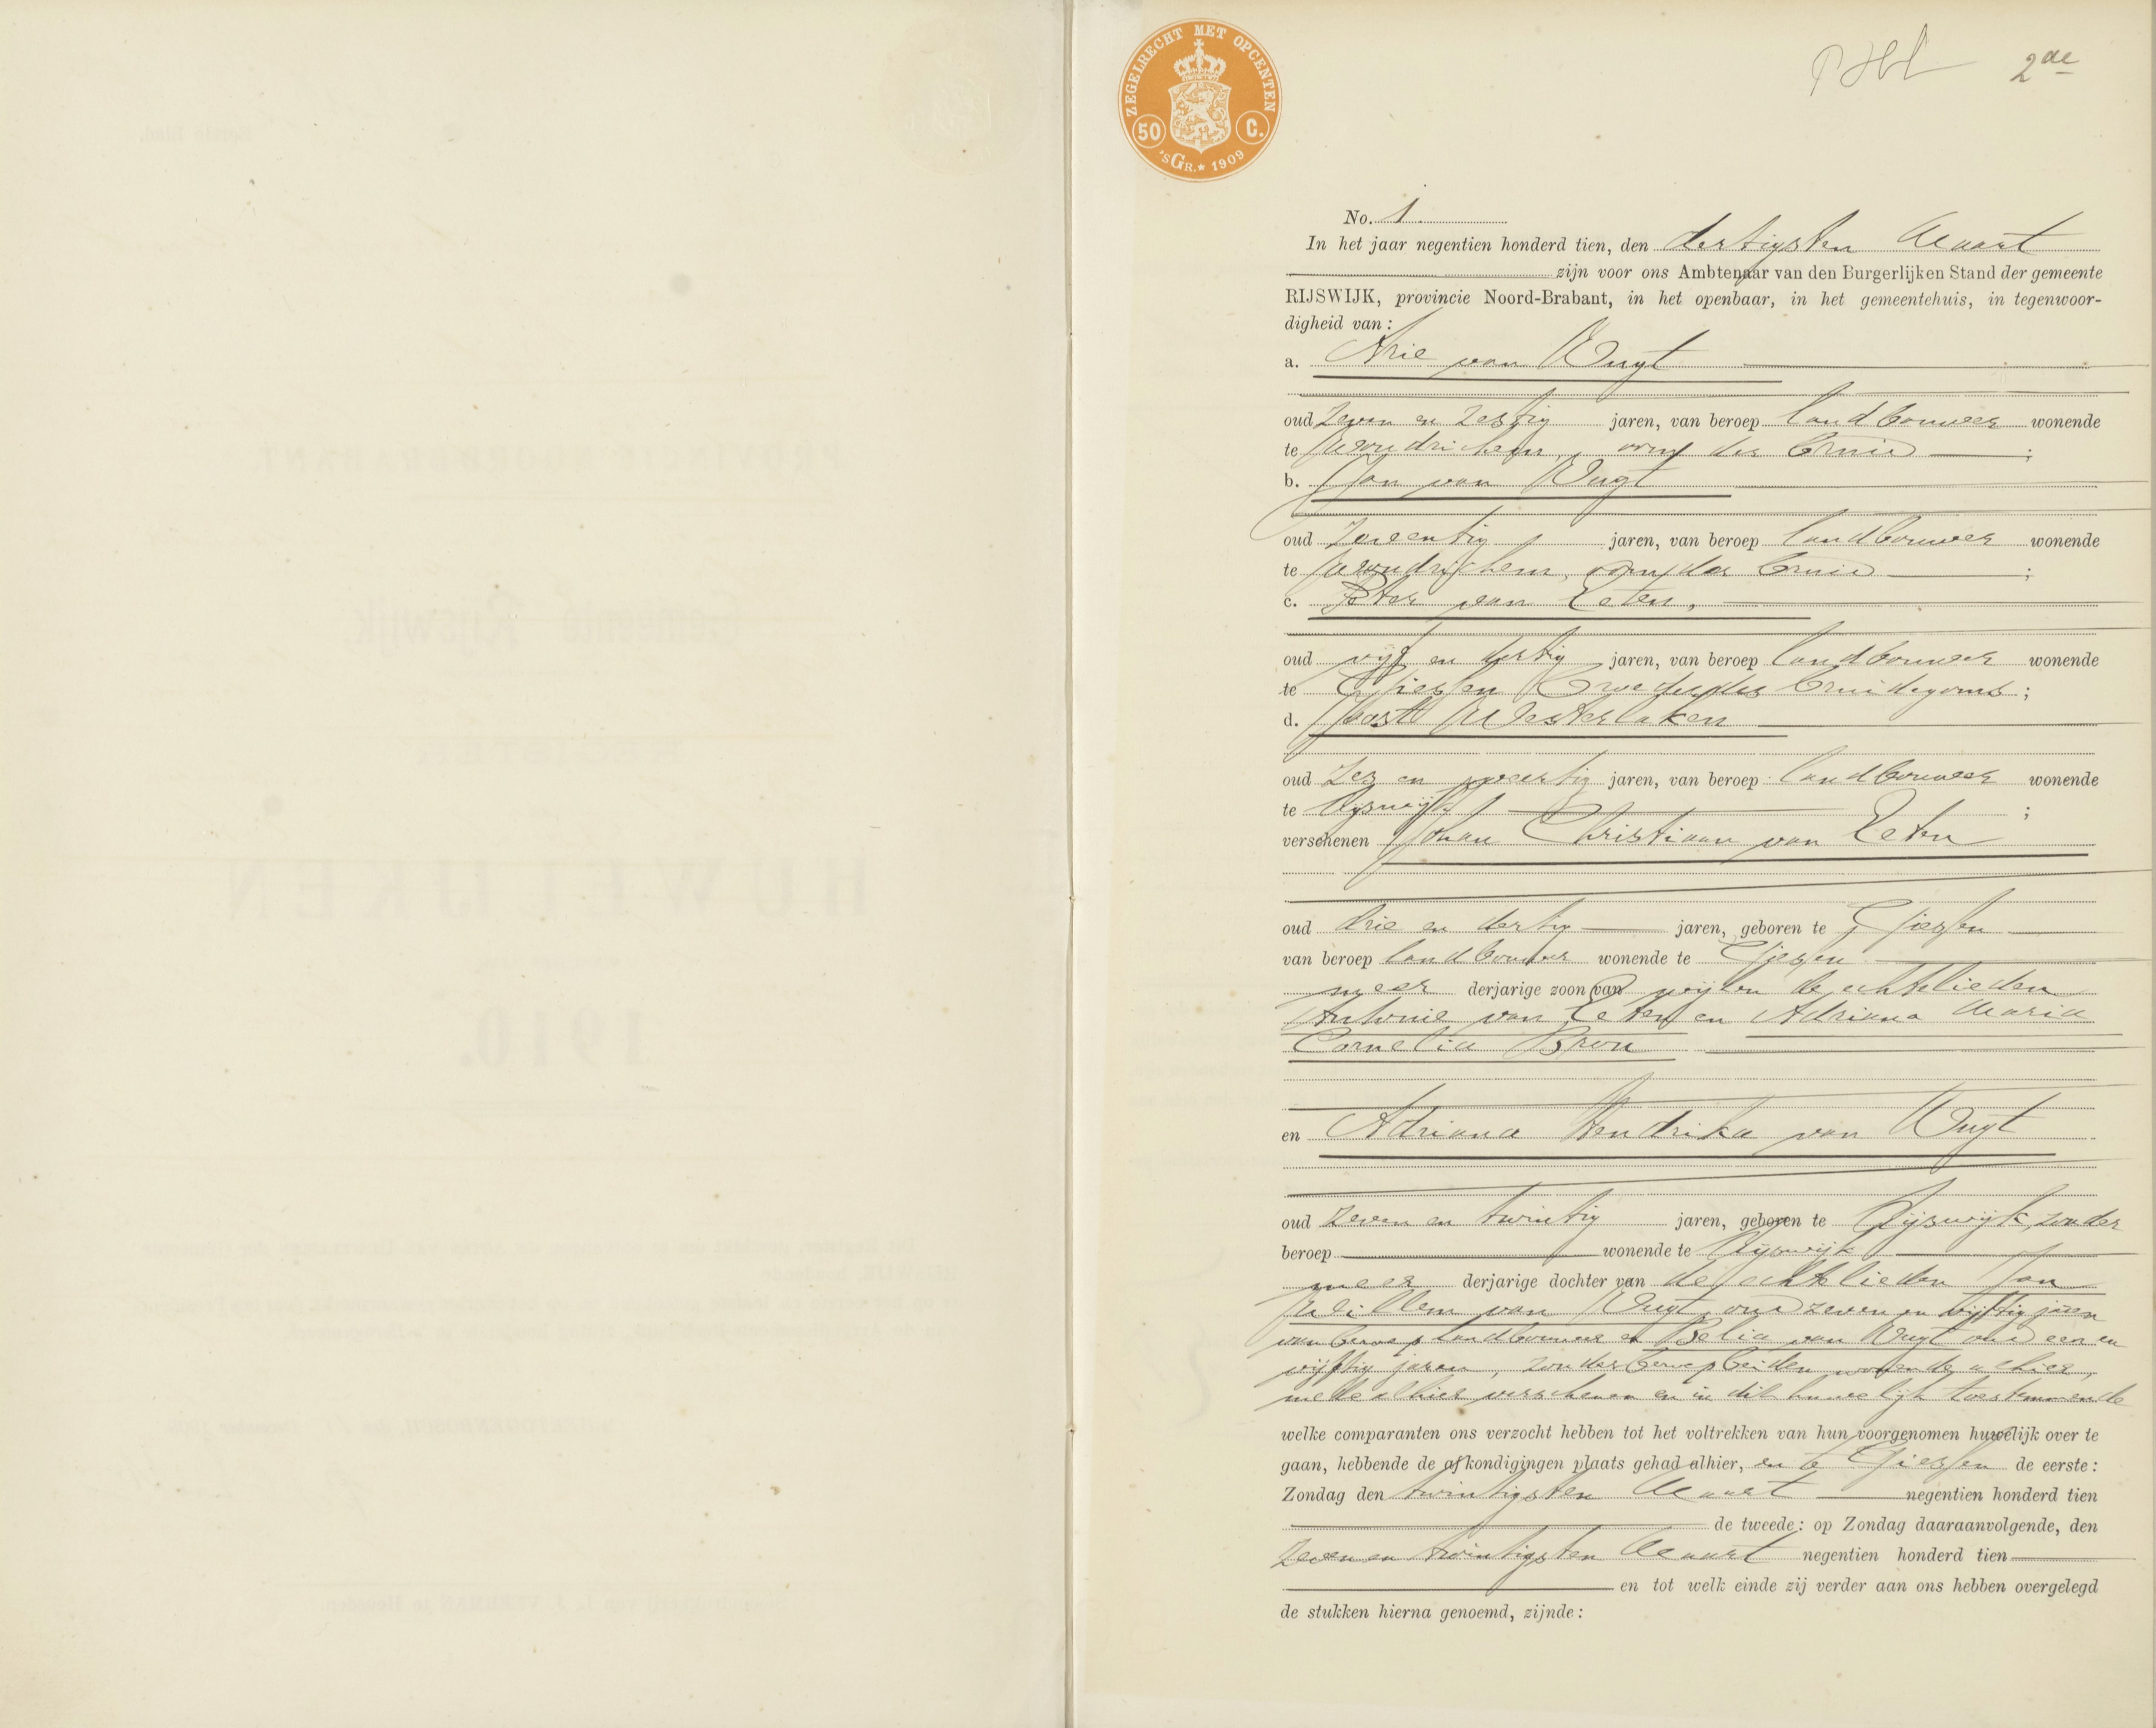 ZEGELRECHT MET OPCENTEN
50 C.
'sGR. * 1909
2de
No. 1.
In het jaar negentien honderd tien, den dertigsten Maart
zijn voor ons Ambtenaar van den Burgerlijken Stand der gemeente
RIJSWIJK, provincie Noord-Brabant, in het openbaar, in het gemeentehuis, in tegenwoor-
digheid van:
a. Arie van Vugt
oud zeven en zestig jaren, van beroep landbouwer wonende
te Woudrichem, oom der bruid ;
b. Jan van Vugt
oud zeventig jaren, van beroep landbouwer wonende
te Woudrichem, oom der bruid ;
c. Peter van Eeten,
oud vijf en dertig jaren, van beroep landbouwer wonende
te Giessen broeder des bruidegoms ;
d. Joost Westerlaken
oud zes en veertig jaren, van beroep landbouwer wonende
te Rijswijk ;
verschenen Johan Christiaan van Eeten
oud drie en dertig jaren, geboren te Giessen
van beroep landbouwer wonende te Giessen
meer derjarige zoon van wijlen de echtelieden
Antonie van Eeten en Adriana Maria
Cornelia Bron
en Adriana Hendrika van Vugt
oud zeven en twintig jaren, geboren te Rijswijk, zonder
beroep wonende te Rijswijk
meer derjarige dochter van de echtelieden Jan
Willem van Vugt, oud zeven en vijftig jaren
van beroep landbouwer en Belia van Vugt oud een en
vijftig jaren, zonder beroep beiden wonende alhier,
mede alhier verschenen en in dit huwelijk toestemmende
welke comparanten ons verzocht hebben tot het voltrekken van hun voorgenomen huwelijk over te
gaan, hebbende de afkondigingen plaats gehad alhier, en te Giessen de eerste:
Zondag den twintigsten Maart negentien honderd tien
de tweede: op Zondag daaraanvolgende, den
zeven en twintigsten Maart negentien honderd tien
en tot welk einde zij verder aan ons hebben overgelegd
de stukken hierna genoemd, zijnde: